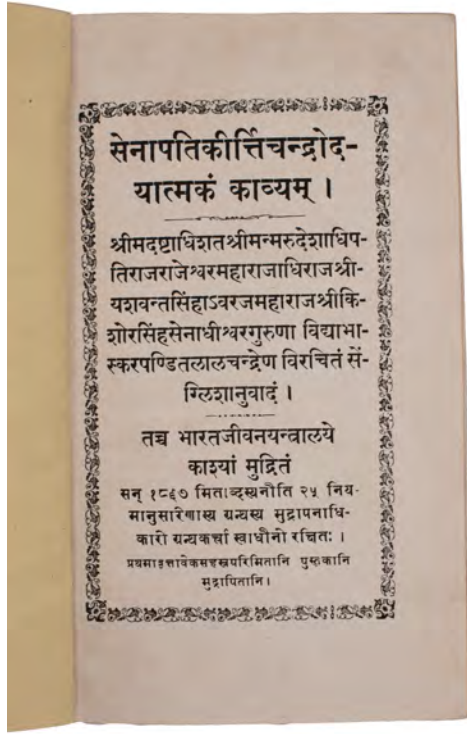 सेनापतिकीर्त्तिचन्द्रोद-
यात्मकं काव्यम् ।
श्रीमदष्टाधिशतश्रीमन्मरुदेशाधिप-
तिराजराजेश्वरमहाराजाधिराजश्री-
यशवन्तसिंहाऽवरजमहाराजश्रीकि-
शोरसिंहसेनाधीश्वरगुरुणा विद्याभा-
स्करपण्डितलालचन्द्रेण विरचितं सें-
ग्लिशानुवादं ।
तच्च भारतजीवनयन्त्रालये
काश्यां मुद्रितं
सन् १८६७ २५ निय-
मानुसारेणास्य ग्रन्थस्य मुद्रापनाधि-
कारो ग्रन्थकर्त्रा स्वाधीनो रक्षितः ।
पुस्तकानि
मुद्रापितानि।